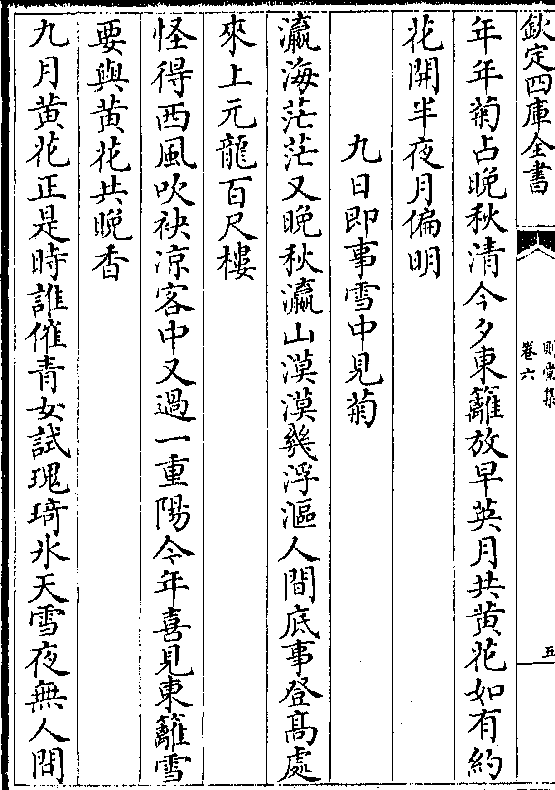 欽定四庫全書
卷六
五
年年菊占晚秋清今夕東籬放早英月共黃花如有約
花開半夜月偏明
九日即事雪中見菊
瀛海茫茫又晚秋瀛山漠漠幾浮漚人間底事登高處
來上元龍百尺樓
怪得西風吹袂凉客中又過一重陽今年喜見東籬雪
要與黃花共晚香
九月黃花正是時誰催青女試瑰琦氷天雪夜無人問